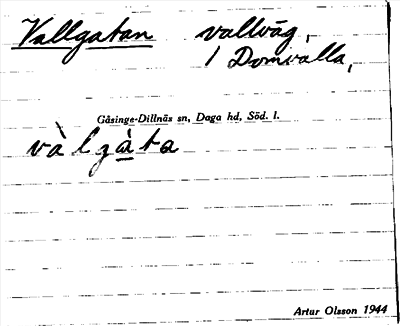 Vallgatan vallväg,
i Domvalla,
Gåsinge-Dillnäs sn, Daga hd, Söd. l.
vàlgàta
Artur Olsson 1944